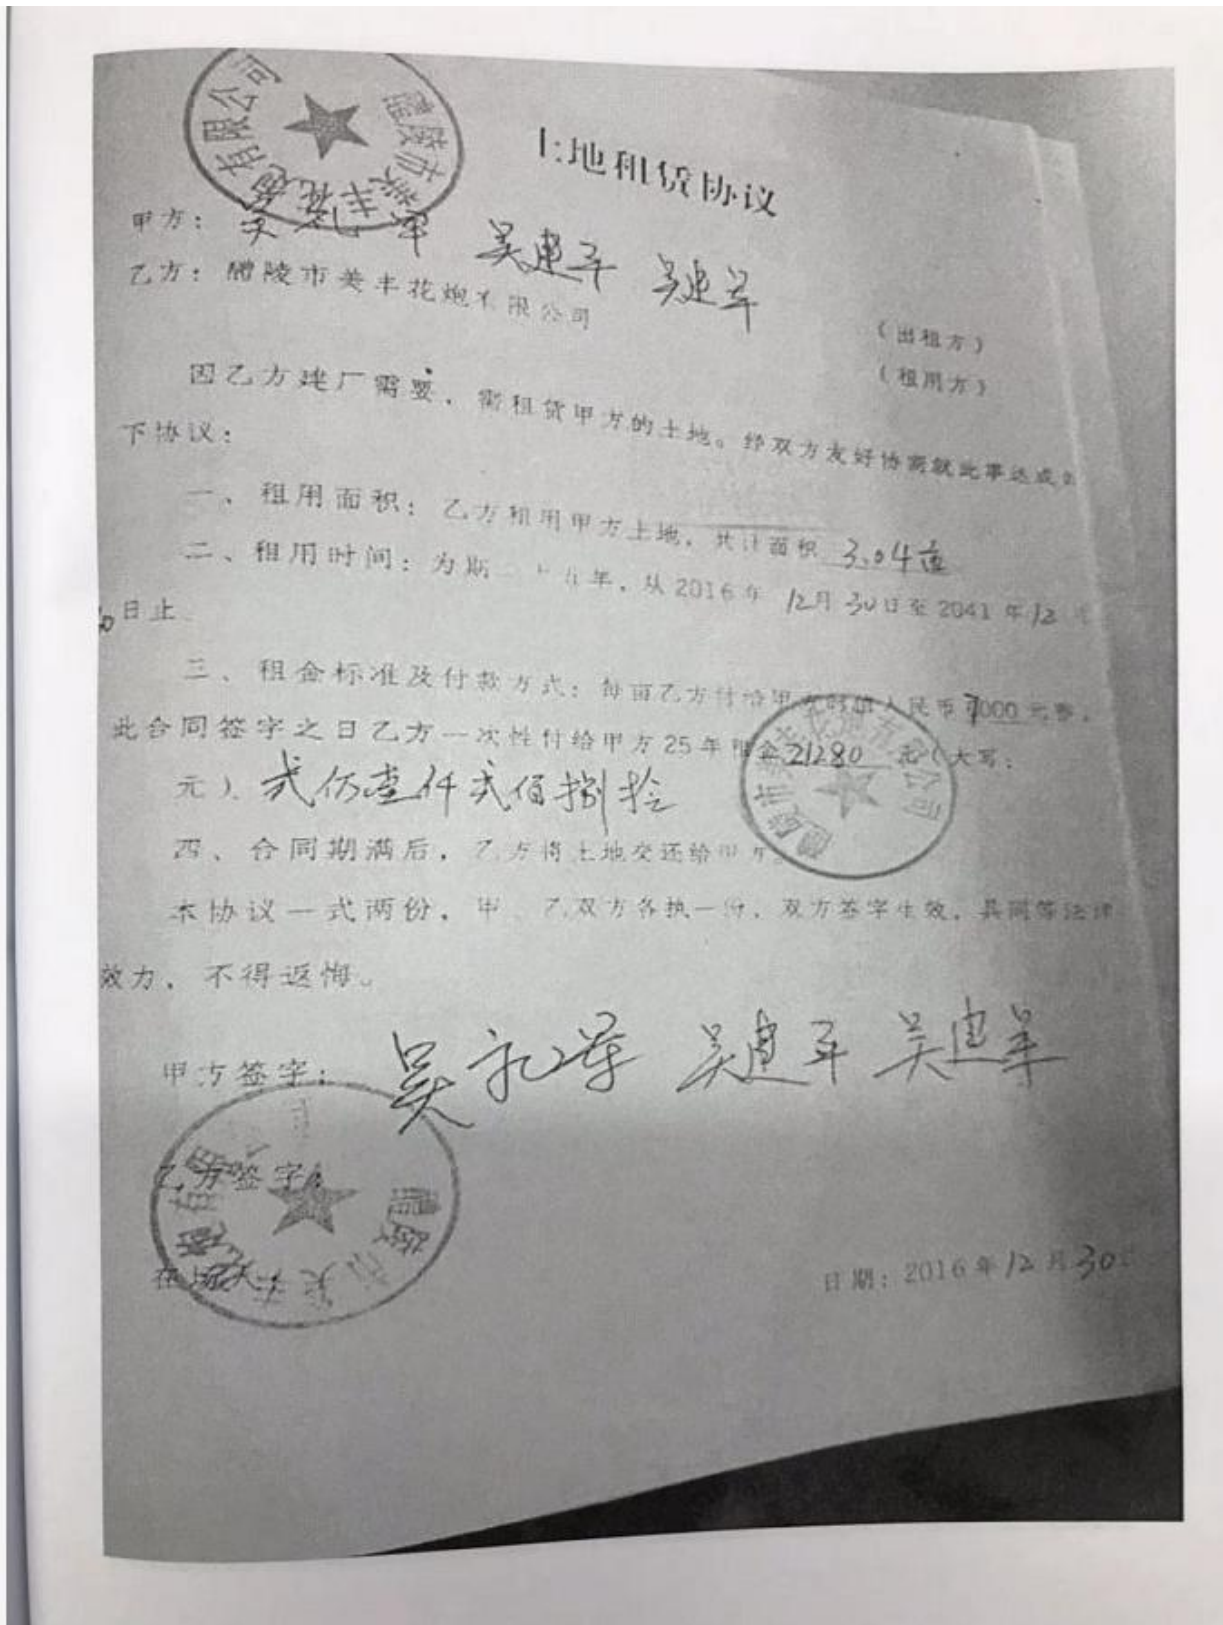 土地租赁协议
甲方： 吴礼军 吴建平 吴建军 （出租方）
乙方：醴陵市美丰花炮有限公司 （租用方）
因乙方建厂需要，需租赁甲方的土地。经双方友好协商就此事达成如
下协议：
一、租用面积：乙方租用甲方土地，共计面积 3.04亩
二、租用时间：为期二十五年，从2016年 12月30日至2041年12月
30日止
三、租金标准及付款方式：每亩乙方付给甲方 人民币7000元整，
此合同签字之日乙方一次性付给甲方25年租金21280元（大写：
元）． 贰仟壹仟贰佰捌拾
四、合同期满后，乙方将土地交还给甲方。
本协议一式两份，甲、乙双方各执一份，双方签字生效，具同等法律
效力，不得返悔。
甲方签字： 吴礼军 吴建平 吴建军
乙方签字：
在场人：
日期：2016年12月30日
醴陵市美丰花炮有限公司
醴陵市美丰花炮有限公司
醴陵市美丰花炮有限公司